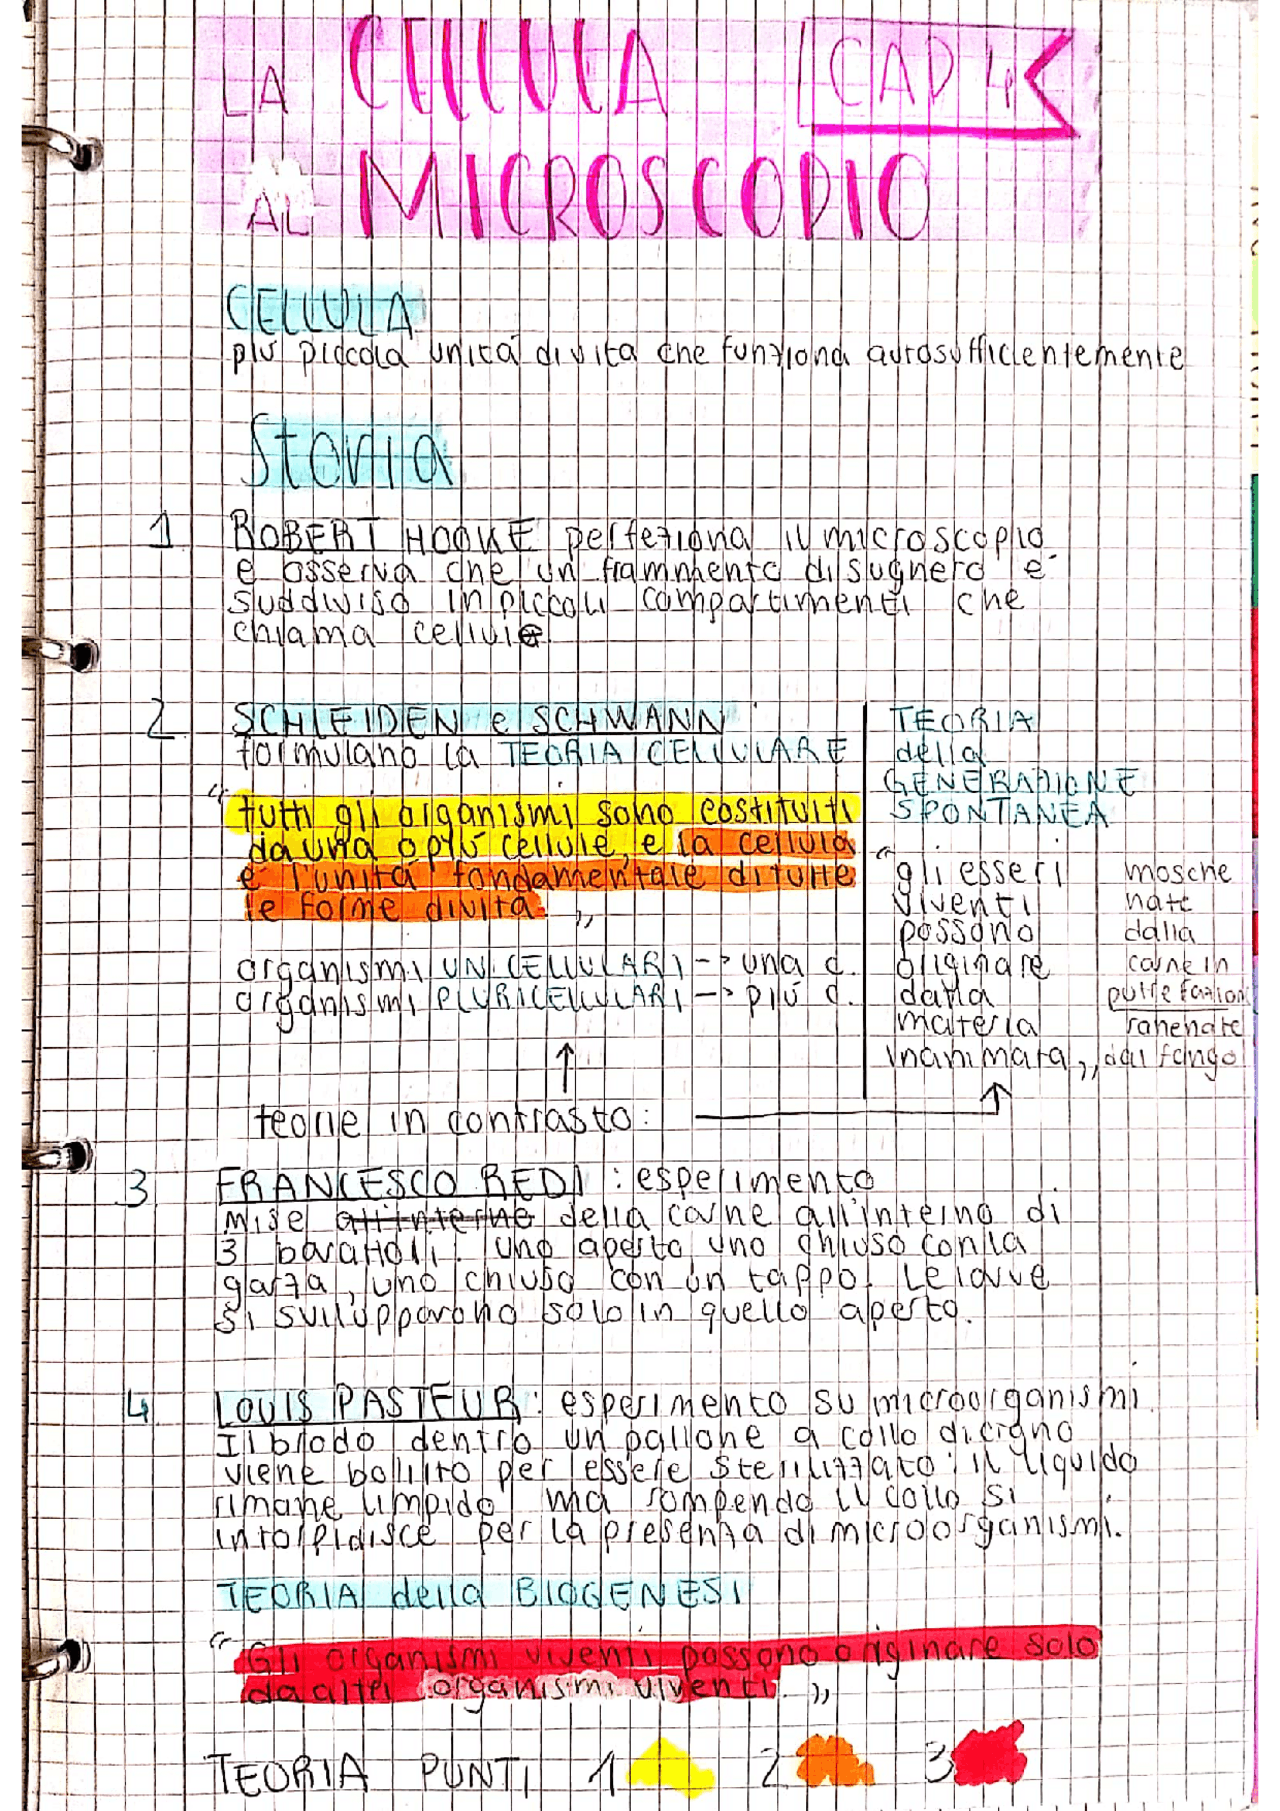 LA CELLULA CAP 4
AL MICROSCOPIO
CELLULA
più piccola unità di vita che funziona autosufficientemente
Storia
1 ROBERT HOOKE perfeziona il microscopio
e osserva che un frammento di sughero è
suddiviso in piccoli compartimenti che
chiama cellule
2 SCHLEIDEN e SCHWANN
formulano la TEORIA CELLULARE
"tutti gli organismi sono costituiti
da una o più cellule, e la cellula
è l'unità fondamentale di tutte
le forme di vita."
organismi UNICELLULARI -> una c.
organismi PLURICELLULARI -> più c.
TEORIA
della
GENERAZIONE
SPONTANEA
"gli esseri
viventi
possono
originare
dalla
materia
inanimata"
mosche
nate
dalla
carne in
putrefazione
rane nate
dal fango
teorie in contrasto:
3 FRANCESCO REDI: esperimento
Mise all'interno della carne all'interno di
3 barattoli: uno aperto, uno chiuso con la
garza, uno chiuso con un tappo. Le larve
si svilupparono solo in quello aperto.
4 LOUIS PASTEUR: esperimento su microorganismi.
Il brodo dentro un pallone a collo di cigno
viene bollito per essere sterilizzato: il liquido
rimane limpido ma rompendo il collo si
intorpidisce per la presenza di microorganismi.
TEORIA della BIOGENESI
"Gli organismi viventi possono originare solo
da altri organismi viventi."
TEORIA PUNTI 1 2 3